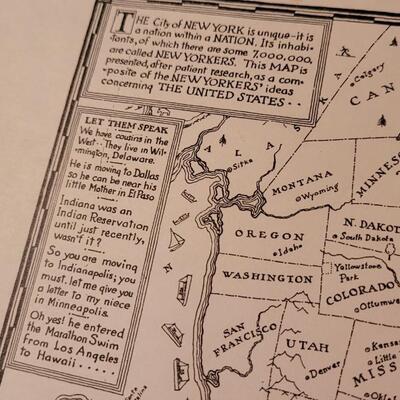 THE City of NEW YORK is unique—it is
a nation within a NATION. Its inhabi-
tants, of which there are some 7,000,000,
are called NEW YORKERS. This MAP is
presented, after patient research, as a com-
posite of the NEW YORKERS' ideas
concerning THE UNITED STATES..
LET THEM SPEAK
We have cousins in the
West-- They live in Wil-
mington, Delaware.
He is moving to Dallas
so he can be near his
little Mother in El Paso
Indiana was an
Indian Reservation
until just recently,
wasn't it?
So you are moving
to Indianapolis; you
must let me give you
a letter to my niece
in Minneapolis.
Oh yes! he entered
the Marathon Swim
from Los Angeles
to Hawaii.....
Calgary
CAN
ALASKA
Sitka
MONTANA
Wyoming
MINNES
OREGON
Idaho
N. DAKOT
South Dakota
WASHINGTON
Yellowstone
Park
COLORADO
Ottumwa
SAN
FRANCISCO
UTAH
Denver
Kansas
Little
MISS